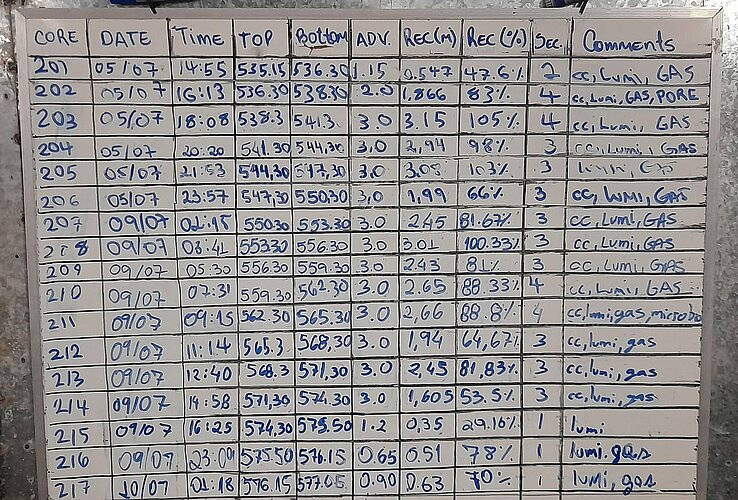 CORE DATE Time TOP Bottom ADV. REC(M) REC(%) Sec. Comments
201 05/07 14:55 535.15 536.30 1.15 0.547 47.6% 2 cc, Lumi, GAS
202 05/07 16:13 536.30 538.30 2.0 1,866 83% 4 cc, Lumi, GAS, PORE
203 05/07 18:08 538.3 541.3. 3.0 3.15 105% 4 cc, Lumi, GAS
204 05/07 20:20 541.30 544,30 3.0 2,94 98% 3 cc, Lumi, GAS
205 05/07 21:53 544,30 547,30 3.0 3.08 103% 3
206 05/07 23:57 547,30 550.30 3,0 1,99 66% 3 cc, LUMI, GAS
207 09/07 550.30 553.30 3.0 2.45 81.67% 3 cc, Lumi, GAS
208 09/07 03:41 553.30 556.30 3.0 3.01 100.33% 3 cc, Lumi, GAS
209 09/07 05:30 556.30 559.30 3.0 2.43 81% 3 cc, Lumi, GAS
210 09/07 07:31 559.30 562.30 3.0 2.65 88.33% 4 cc, Lumi, GAS
211 09/07 09:15 562.30 565.30 3.0 2,66 88.8% 4 cc, lumi, gas, microbio
212 09/07 11:14 565.3 568,30 3.0 1,94 64,67% 3 cc, lumi, gas
213 09/07 12:40 568.3 571,30 3.0 2,45 81,83% 3 cc, lumi, gas
214 09/07 14:58 571,30 574.30 3.0 1,605 53.5% 3 cc, lumi, gas
215 09/07 16:25 574,30 575.50 1.2 0,35 29.16% 1 lumi
216 09/07 23:09 575.50 576.15 0.65 0.51 78% 1 lumi, gas
217 10/07 01:18 576.15 0.90 0.63 70% 1 lumi, gas